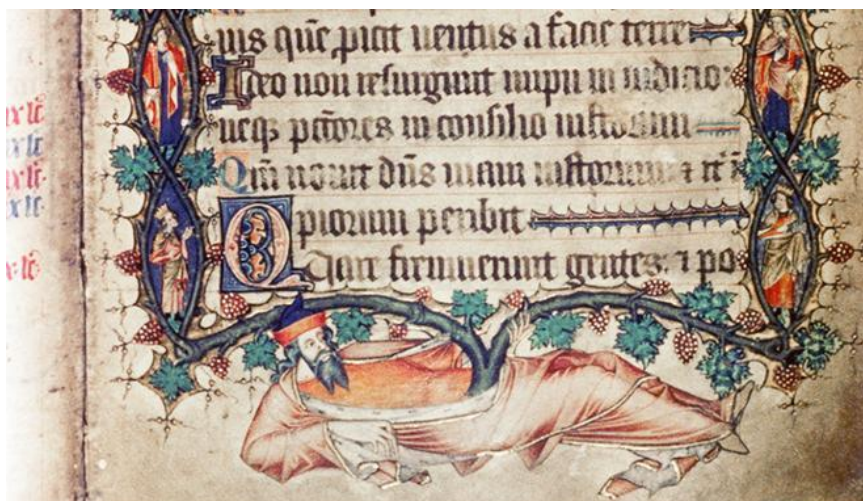 uis que picit uentus a facie terre
Ideo non resurgunt impii in iudicio
neq; pctores in consilio iustorum
Qm nouit dns uiam iustorum &
piorum peribit
Quare fremuerunt gentes: & po